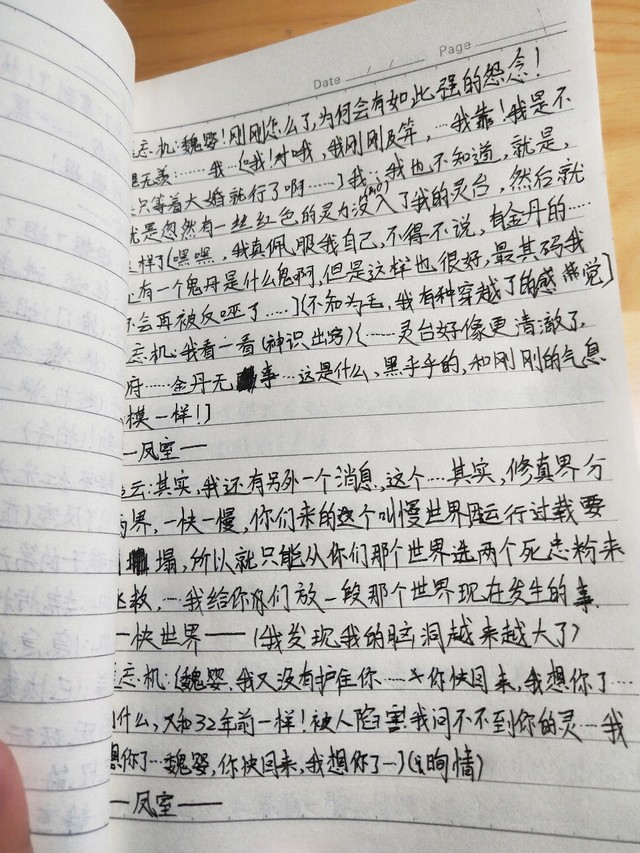 Date / / Page
忘机:魏婴!刚刚怎么了,为何会有如此强的怨念!
无羡……我…(哦!对哦,我刚刚及笄,…我靠!我是不
只等着大婚就行了啊……)我…我也不知道,就是,
就是忽然有一丝红色的灵力没(mò)入了我的灵台,然后就
样了[嘿嘿,我真佩服我自己,不得不说,有金丹的……
有一个鬼丹是什么鬼啊,但是这样也很好,最其码我
不会再被反噬了……](不知为毛,我有种穿越了的感觉]
忘机:我看一看(神识出窍)(……灵台好像更清澈了,
府……金丹无事…这是什么、黑乎乎的,和刚刚的气息
模一样!]
—凤室—
云:其实,我还有另外一个消息,这个…其实,修真界分
两界,一快一慢,你们来的这个叫慢世界因运行过载要
塌,所以就只能从你们那个世界选两个死忠粉来
拯救,…我给你们放一段那个世界现在发生的事
一快世界——(我发现我的脑洞越来越大了)
忘机:(魏婴,我又没有护住你……你快回来,我想你了…
为什么,又和32年前一样!被人陷害我问不到你的灵…我
想你了…魏婴,你快回来,我想你了…)(情)
—凤室——